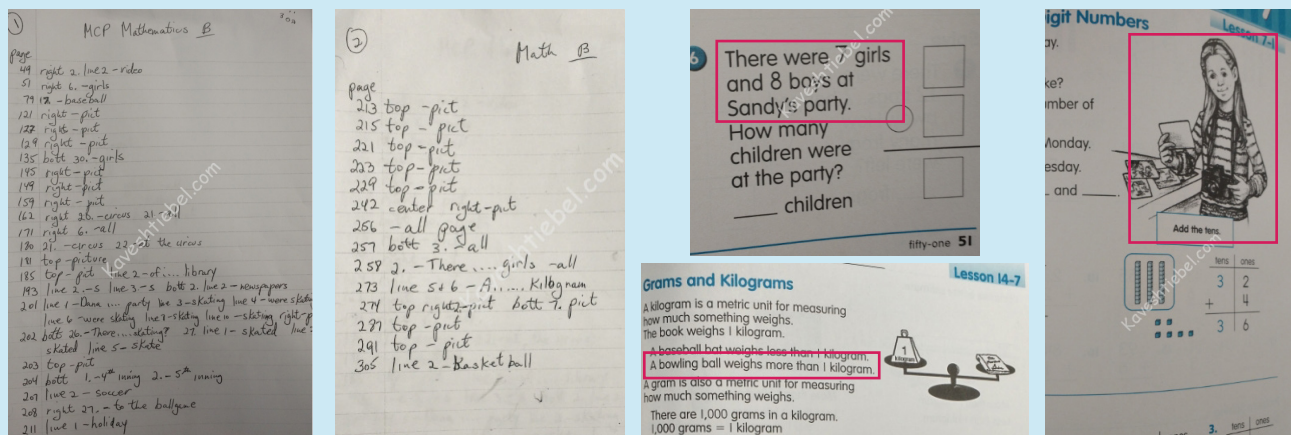 1
MCP Mathematics B
page
49 right 2. line 2 - video
51 right 6. - girls
79 12. - baseball
121 right - pict
127 right - pict
129 right - pict
135 bott 30. - girls
145 right - pict
149 right - pict
159 right - pict
162 right 20. - circus 21. - all
171 right 6. - all
180 21. - circus 22. at the circus
181 top - picture
185 top - pict line 2 - of .... library
193 line 2. - 5 line 3 - 5 bott 2. line 2 - newspapers
201 line 1 - Dana .... party line 3 - skating line 4 - were skating
line 6 - were skating line 7 - skating line 10 - skating right - p
202 bott 26. - There .... skating? 27. line 1 - skated line
skated line 5 - skate
203 top - pict
204 bott 1. - 4th inning 2. - 5th inning
207 line 2 - soccer
208 right 27. - to the ballgame
211 line 1 - holiday
2
Math B
page
213 top - pict
215 top - pict
221 top - pict
223 top - pict
229 top - pict
242 center right - pict
256 - all page
257 bott 3. - all
258 2. - There .... girls - all
273 line 5 + 6 - A ...... kilogram
274 top right - pict bott 7. pict
287 top - pict
291 top - pict
305 line 2 - Basketball
6
There were 7 girls
and 8 boys at
Sandy's party.
How many
children were
at the party?
____ children
fifty-one 51
Grams and Kilograms
Lesson 14-7
A kilogram is a metric unit for measuring
how much something weighs.
The book weighs 1 kilogram.
A baseball bat weighs less than 1 kilogram.
A bowling ball weighs more than 1 kilogram.
A gram is also a metric unit for measuring
how much something weighs.
There are 1,000 grams in a kilogram.
1,000 grams = 1 kilogram
1
kilogram
igit Numbers
Lesson 7-1
ay.
ke?
mber of
Monday.
esday.
and ____.
Add the tens.
tens ones
3 2
+ 4
3 6
3. tens ones
Kaveshtiebel.com
Kaveshtiebel.com
Kaveshtiebel.com
Kaveshtiebel.com
Kaveshtiebel.com